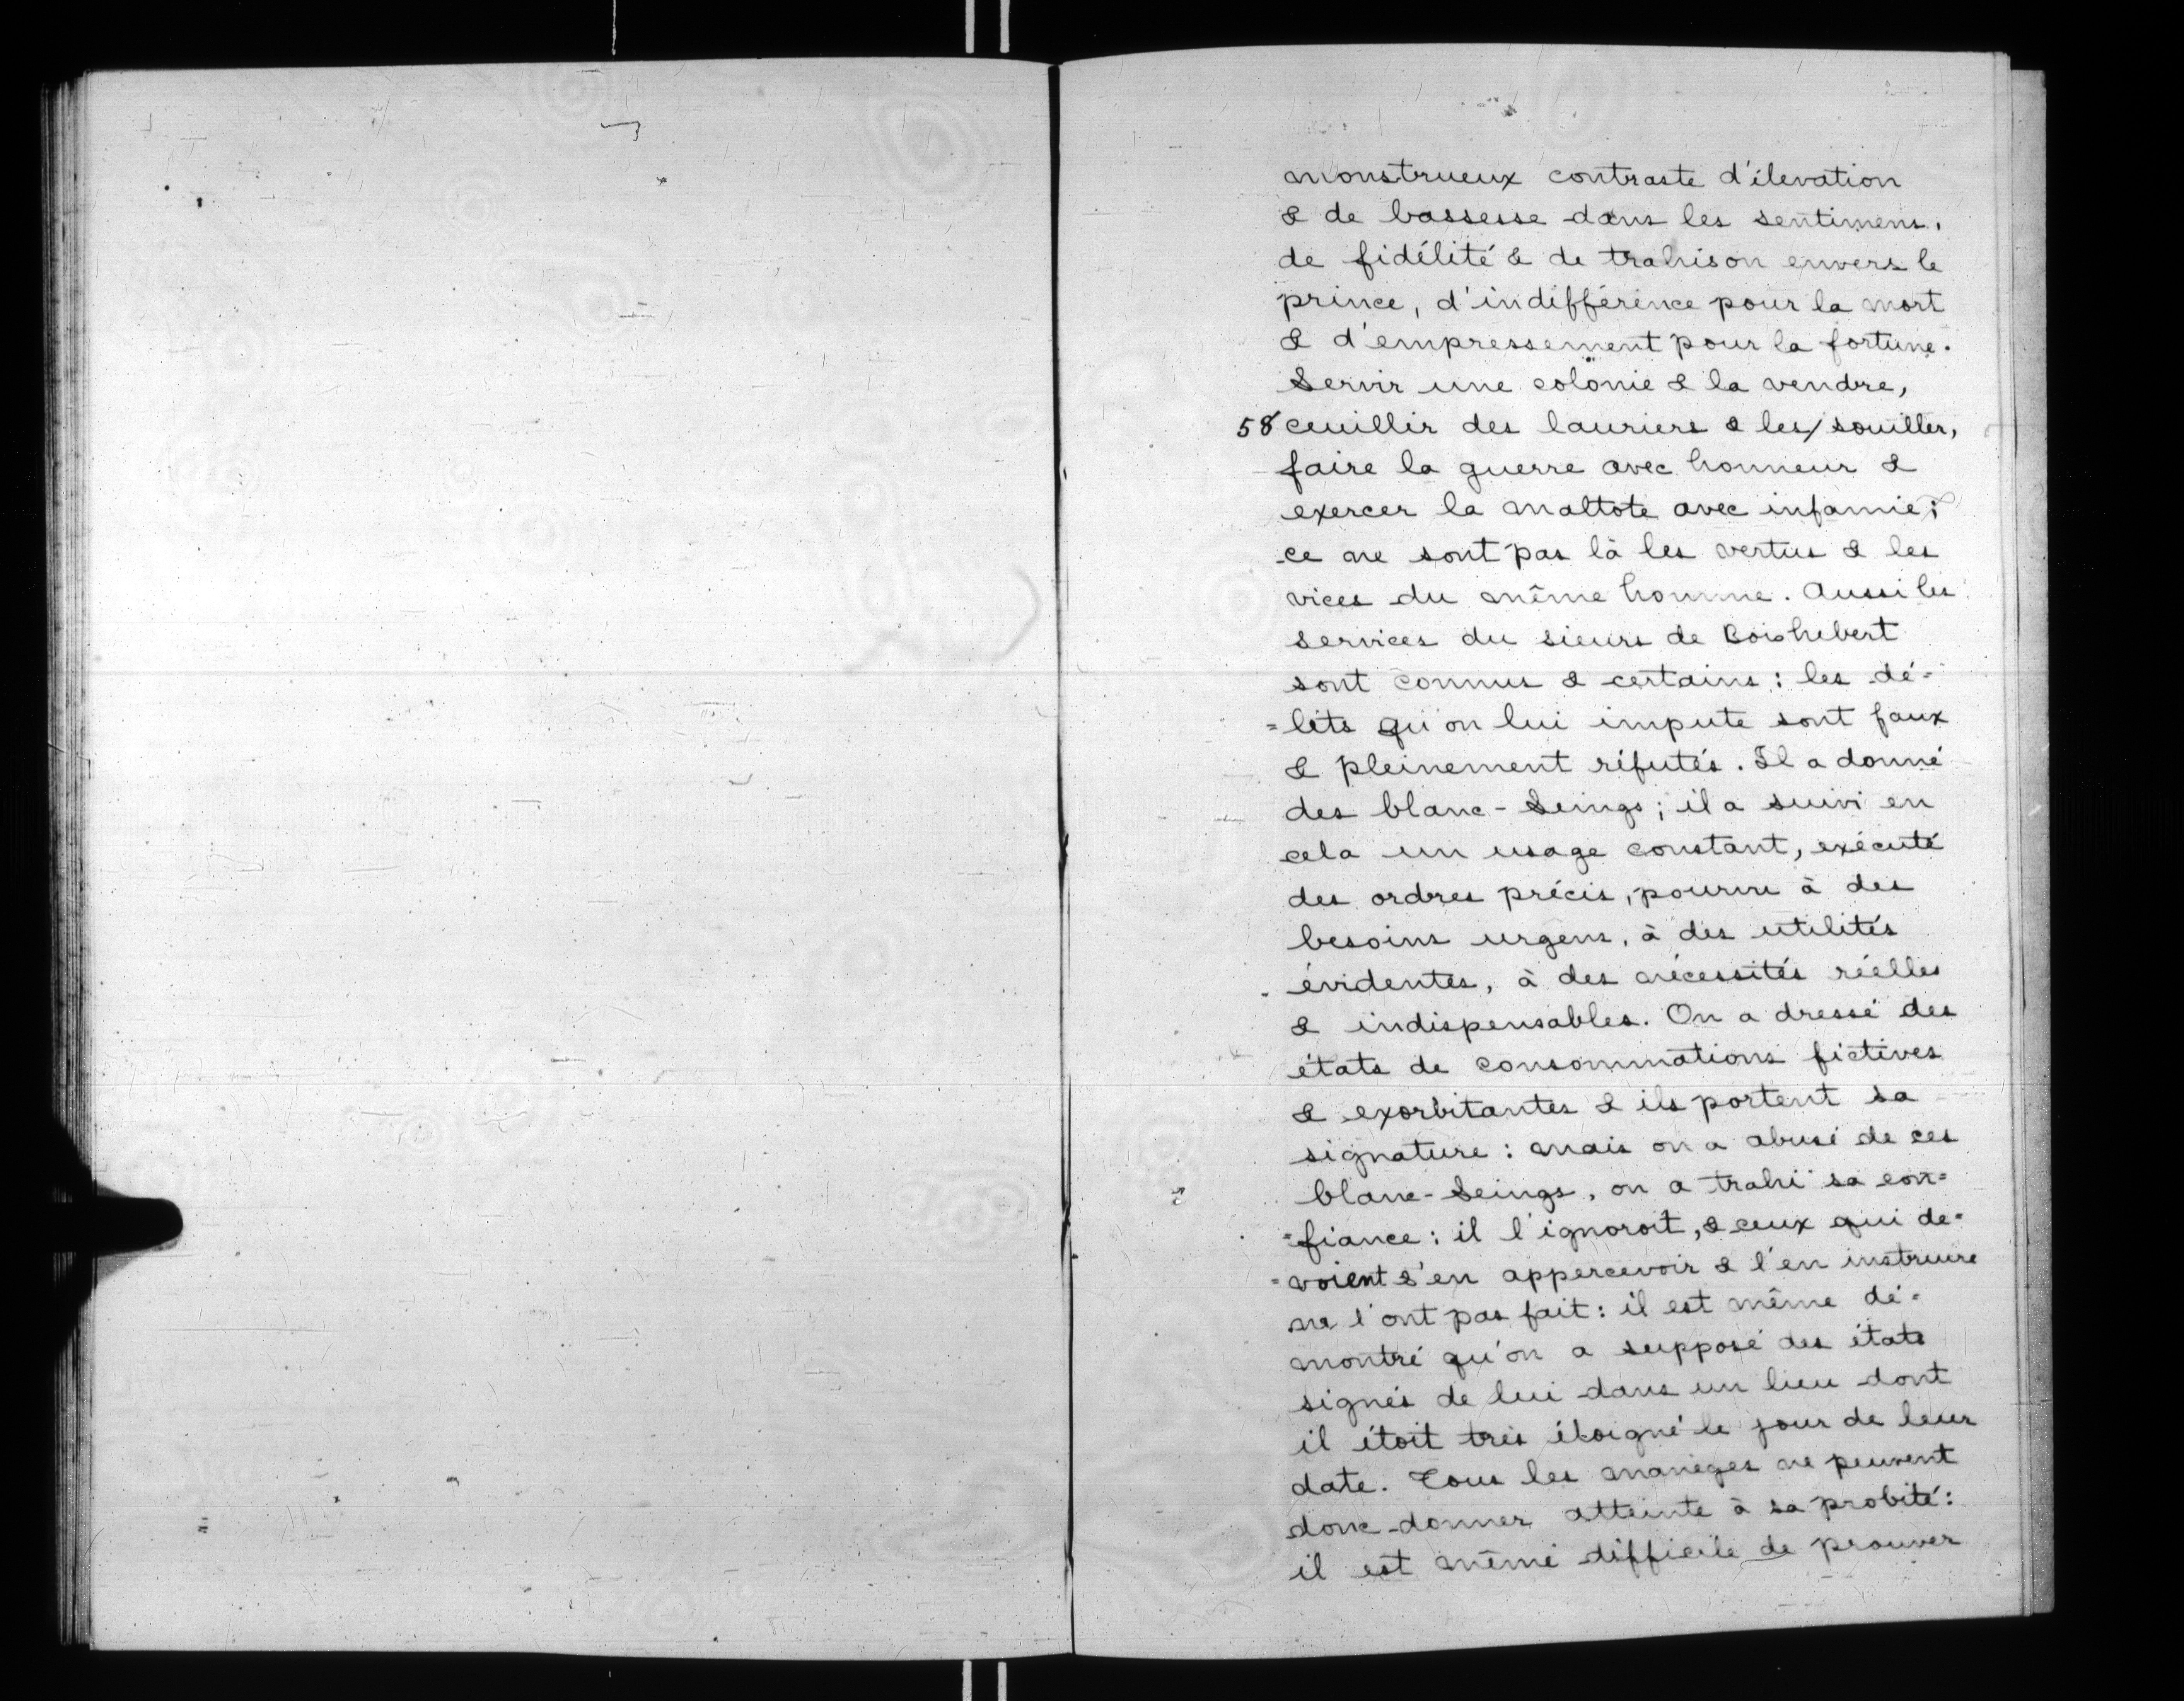 monstrueux contraste d'élevation
& de bassesse dans les sentimens,
de fidélité & de trahison envers le
prince, d'indifférence pour la mort
& d'empressement pour la fortune.
Servir une colonie & la vendre,
58 ceuillir des lauriers & les/souiller,
faire la guerre avec honneur &
exercer la maltote avec infamie;
ce ne sont pas là les vertus & les
vices du même homme. Aussi les
services du sieurs de Boishebert
sont connus & certains : les dé=
=lits qu'on lui impute sont faux
& pleinement réfutés. Il a donné
des blanc-Seings; il a suivi en
cela un usage constant, exécuté
des ordres précis, pourvu à des
besoins urgens, à des utilités
évidentes, à des nécessités réelles
& indispensables. On a dressé des
états de consommations fictives
& exorbitantes & ils portent sa
signature : mais on a abusé de ces
blanc-Seings, on a trahi sa con=
=fiance : il l'ignoroit, & ceux qui de=
=voient s'en appercevoir & l'en instruire
ne l'ont pas fait : il est même dé=
montré qu'on a supposé des états
signés de lui dans un lieu dont
il étoit très éloigné le jour de leur
date. Tous les manèges ne peuvent
donc donner atteinte à sa probité :
il est même difficile de prouver